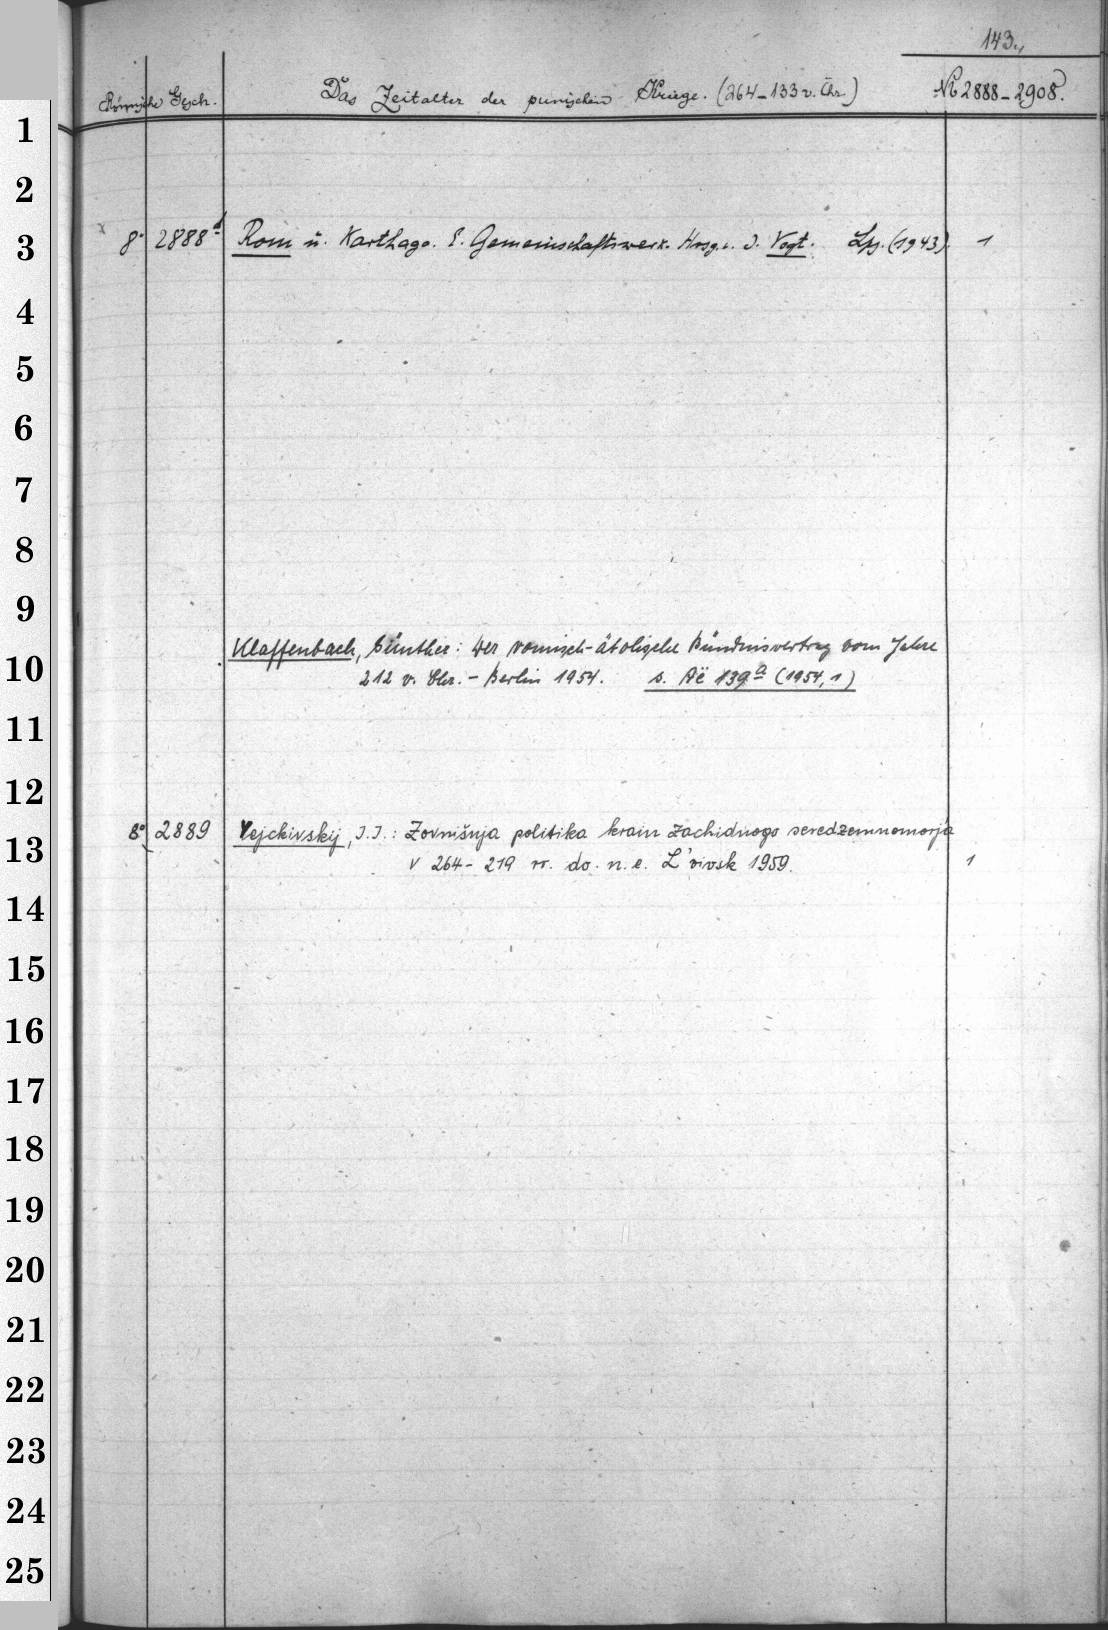 143.
Römische Gesch. Das Zeitalter der punischen Kriege. (264-133 v. Chr.) № 2888-2908.
1
2
3 8° 2888d Rom u. Karthago. E. Gemeinschaftswerk. Hrsg. v. J. Vogt. Lpz. (1943). 1
4
5
6
7
8
9
Klaffenbach, Günther: Der römisch-ätolische Bündnisvertrag vom Jahre
10 212 v. Chr. - Berlin 1954. s. Aë 139a (1954,1)
11
12
8° 2889 Vejckivskij, I.I.: Zovnišnja politika krain zachidnogo seredzemnomorja
13 v 264-219 rr. do. n. e. L'vivsk 1959. 1
14
15
16
17
18
19
20
21
22
23
24
25